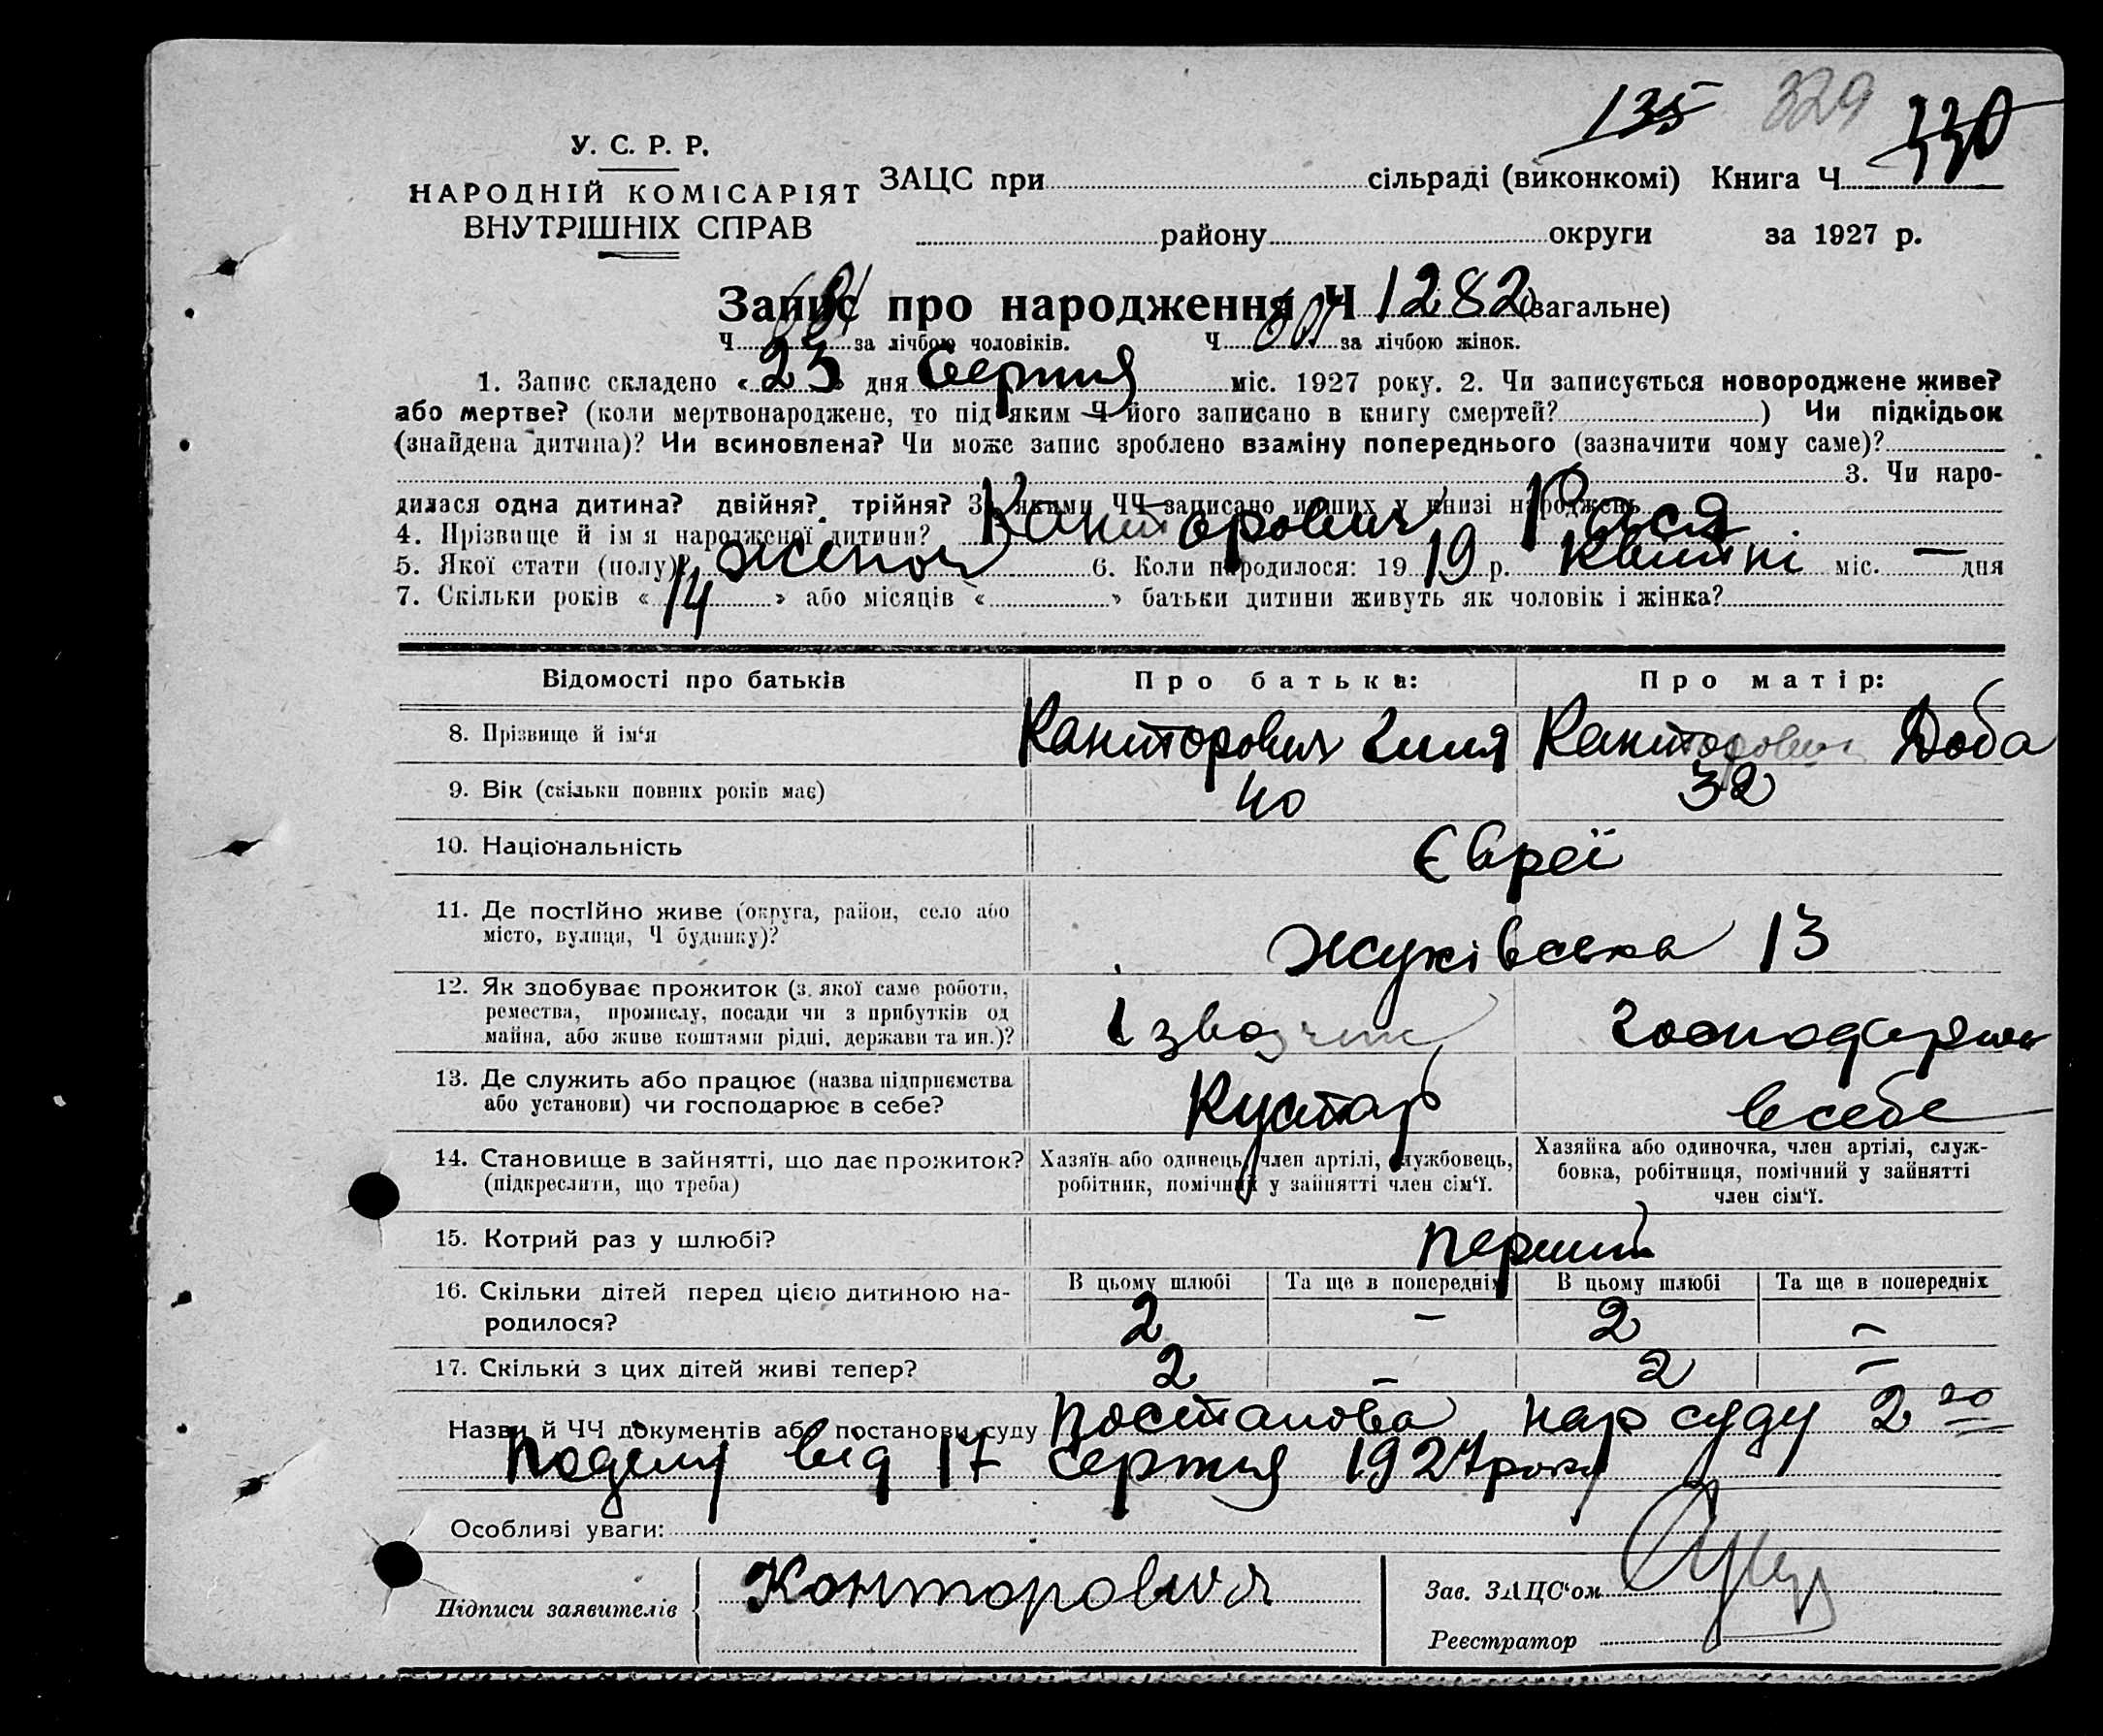 135 329 330
У. С. Р. Р.
НАРОДНІЙ КОМІСАРІЯТ
ВНУТРІШНІХ СПРАВ
ЗАЦС при сільраді (виконкомі) Книга Ч
району округи за 1927 р.
Запис про народження Ч 1282 (загальне)
Ч 681 за лічбою чоловіків. Ч 601 за лічбою жінок.
1. Запис складено « 23 » дня Серпня міс. 1927 року. 2. Чи записується новороджене живе?
або мертве? (коли мертвонароджене, то під яким Ч його записано в книгу смертей? ) Чи підкідьок
(знайдена дитина)? Чи всиновлена? Чи може запис зроблено взаміну попереднього (зазначити чому саме)?
3. Чи наро-
дилася одна дитина? двійня? трійня? З якими ЧЧ записано инших у книзі народжень
4. Прізвище й ім я народженої дитини? Канторович Рася
5. Якої стати (полу)? жіноч 6. Коли народилося: 19 19 р. Квітні міс. — дня
7. Скільки років « 14 » або місяців « » батьки дитини живуть як чоловік і жінка?
Відомості про батьків Про батька: Про матір:
8. Прізвище й ім‘я Канторович Канторович Доба
9. Вік (скільки повних років має) 40 32
10. Національність Євреї
11. Де постійно живе (округа, район, село або
місто, вулиця, Ч будинку)? 13
12. Як здобуває прожиток (з якої саме роботи,
ремества, промислу, посади чи з прибутків од
майна, або живе коштами рідні, держави та ин.)? Ізвозчик
13. Де служить або працює (назва підприємства
або установи) чи господарює в себе? Кустар всебе
14. Становище в зайнятті, що дає прожиток?
(підкреслити, що треба)
Хазяїн або одинець, член артілі, службовець,
робітник, помічний у зайнятті член сім‘ї.
Хазяйка або одиночка, член артілі, служ-
бовка, робітниця, помічний у зайнятті
член сім‘ї.
15. Котрий раз у шлюбі? перший
16. Скільки дітей перед цією дитиною на-
родилося?
В цьому шлюбі Та ще в попередніх В цьому шлюбі Та ще в попередніх
2 — 2 —
17. Скільки з цих дітей живі тепер? 2 — 2 —
Назви й ЧЧ документів або постанови суду Постанова нар суду 2 го
від 17 серпня 1927 року
Особливі уваги:
Підписи заявителів Конторович
Зав. ЗАЦС‘ом
Реєстратор